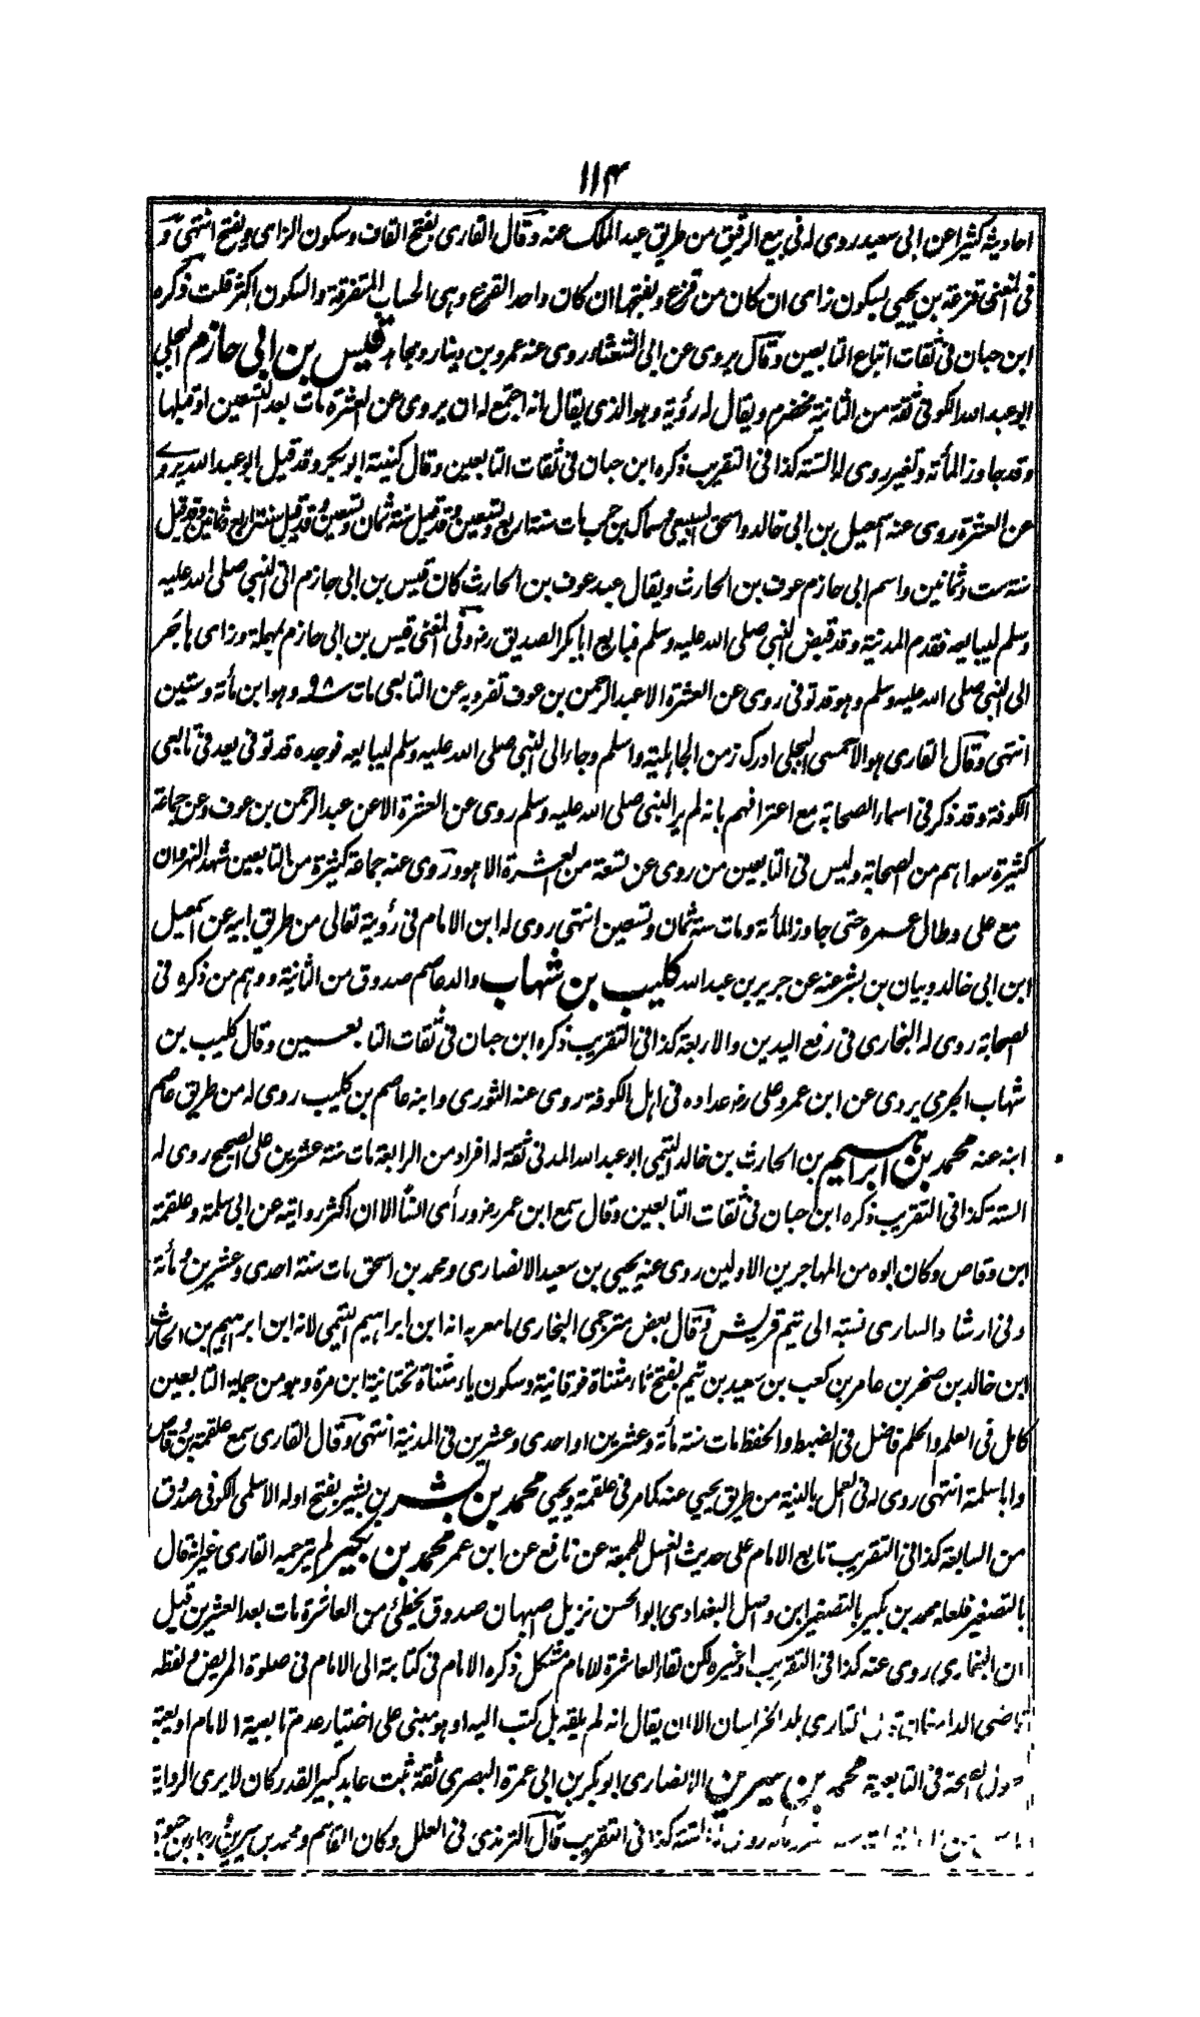 ۱۱۴
احاديثه كثيرا عن ابى سعيد روى له فى بيع الرقيق من طريق عبد الملك عنه وقال القارى بفتح القاف وسكون الزاى وبفتح انتهى و
فى المغنى قزعة بن يحيى بسكون زاى ان كان من قزع وبفتحها ان كان واحد القزع وهى الحساب المتفرقة والسكون اكثر قلت ذكره
ابن حبان فى ثقات اتباع التابعين وقال يروى عن ابى الشعثاء روى عنه عمرو بن دينار ومجاهد قيس بن ابى حازم البجلى
ابو عبد الله الكوفى ثقة من الثانية مخضرم ويقال له رؤية وهو الذى يقال انه اجتمع له ان يروى عن العشرة مات بعد التسعين او قبلها
وقد جاوز المأة وتغير روى له الستة كذا فى التقريب ذكره ابن حبان فى ثقات التابعين وقال كنيته ابو بحر وقد قيل ابو عبد الله يروى
عن العشرة روى عنه اسمعيل بن ابى خالد واسحق السبيعى وسماك بن حرب مات سنة اربع وتسعين وقد قيل سنة ثمان وتسعين وقد قيل سنة اربع وثمانين وقد قيل
سنة ست وثمانين واسم ابى حازم عوف بن الحارث ويقال عبد عوف بن الحارث كان قيس بن ابى حازم اتى النبى صلى الله عليه
وسلم ليبايعه فقدم المدينة وقد قبض النبى صلى الله عليه وسلم فبايع ابا بكر الصديق رضه وفى المغنى قيس بن ابى حازم بمهملة وزاى هاجر
الى النبى صلى الله عليه وسلم وهو قد توفى روى عن العشرة الا عبد الرحمن بن عوف تفرد به عن التابعى مات ۹۸ وهو ابن مأة وستين
انتهى وقال القارى هو الاحمسى البجلى ادرك زمن الجاهلية واسلم وجاء الى النبى صلى الله عليه وسلم ليبايعه فوجده قد توفى يعد فى تابعى
الكوفة وقد ذكر فى اسماء الصحابة مع اعترافهم بانه لم ير النبى صلى الله عليه وسلم روى عن العشرة الا عن عبد الرحمن بن عوف وعن جماعة
كثيرة سواهم من الصحابة وليس فى التابعين من روى عن تسعة من العشرة الا هو وروى عنه جماعة كثيرة من التابعين شهد النهروان
مع على وطال عمره حتى جاوز المأة ومات سنة ثمان وتسعين انتهى روى له ابن الامام فى رؤية تعالى من طريق ابيه عن اسمعيل
ابن ابى خالد وبيان بن بشر عنه عن جرير بن عبد الله كليب بن شهاب والد عاصم صدوق من الثانية ووهم من ذكره فى
الصحابة روى له البخارى فى رفع اليدين والاربعة كذا فى التقريب ذكره ابن حبان فى ثقات التابعين وقال كليب بن
شهاب الجرمى يروى عن ابن عمر وعلى رضه عداده فى اهل الكوفة روى عنه الثورى وابنه عاصم بن كليب روى له من طريق عاصم
ابنه عنه محمد بن ابراهيم بن الحارث بن خالد التيمى ابو عبد الله المدنى ثقة له افراد من الرابعة مات سنة عشرين على الصحيح روى له
الستة كذا فى التقريب ذكره ابن حبان فى ثقات التابعين وقال سمع ابن عمر رضه ورأى انسا الا ان اكثر روايته عن ابى سلمة وعلقمة
ابن وقاص وكان ابوه من المهاجرين الاولين روى عنه يحيى بن سعيد الانصارى ومحمد بن اسحق مات سنة احدى وعشرين ومأة
وفى ارشاد السارى نسبته الى تيم قريش وقال بعض مترجمى البخارى مامعربه انه ابن ابراهيم التيمى لانه ابن ابراهيم بن الحارث
ابن خالد بن صخر بن عامر بن كعب بن سعيد بن تيم بفتح تاء مثناة فوقانية وسكون ياء مثناة تحتانية ابن مرة وهو من جملة التابعين
كامل فى العلم والحلم فاضل فى الضبط والحفظ مات سنة مأة وعشرين او احدى وعشرين فى المدينة انتهى وقال القارى سمع علقمة بن وقاص
وابا سلمة انتهى روى له فى العمل بالنية من طريق يحيى عنه كما مر فى علقمة ويحيى محمد بن بشر بن بشير بفتح اوله الاسلمى الكوفى صدوق
من السابعة كذا فى التقريب تابع الامام على حديث الغسل للجمعة عن نافع عن ابن عمر محمد بن بكير لم يترجمه القارى غير انه قال
بالتصغير فلعله محمد بن بكير بالتصغير ابن واصل البغدادى ابو الحسن نزيل اصبهان صدوق يخطئ من العاشرة مات بعد العشرين قيل
ان البخارى روى عنه كذا فى التقريب او غيره لكن لقاء العاشرة للامام مشكل ذكره الامام فى كتابته الى الامام فى صلوة المريض ولفظه
قاضى الدامغان القارى بلد الخراسان الا ان يقال انه لم يلقه بل كتب اليه او هو مبنى على اختيار عدم تابعية الامام او
فى التابعية محمد بن سيرين الانصارى ابو بكر بن ابى عمرة البصرى ثقة ثبت عابد كبير القدر كان لا يرى الرواية
الستة كذا فى التقريب قال الترمذى فى العلل وكان القاسم ومحمد بن سيرين ورجاء بن حيوة